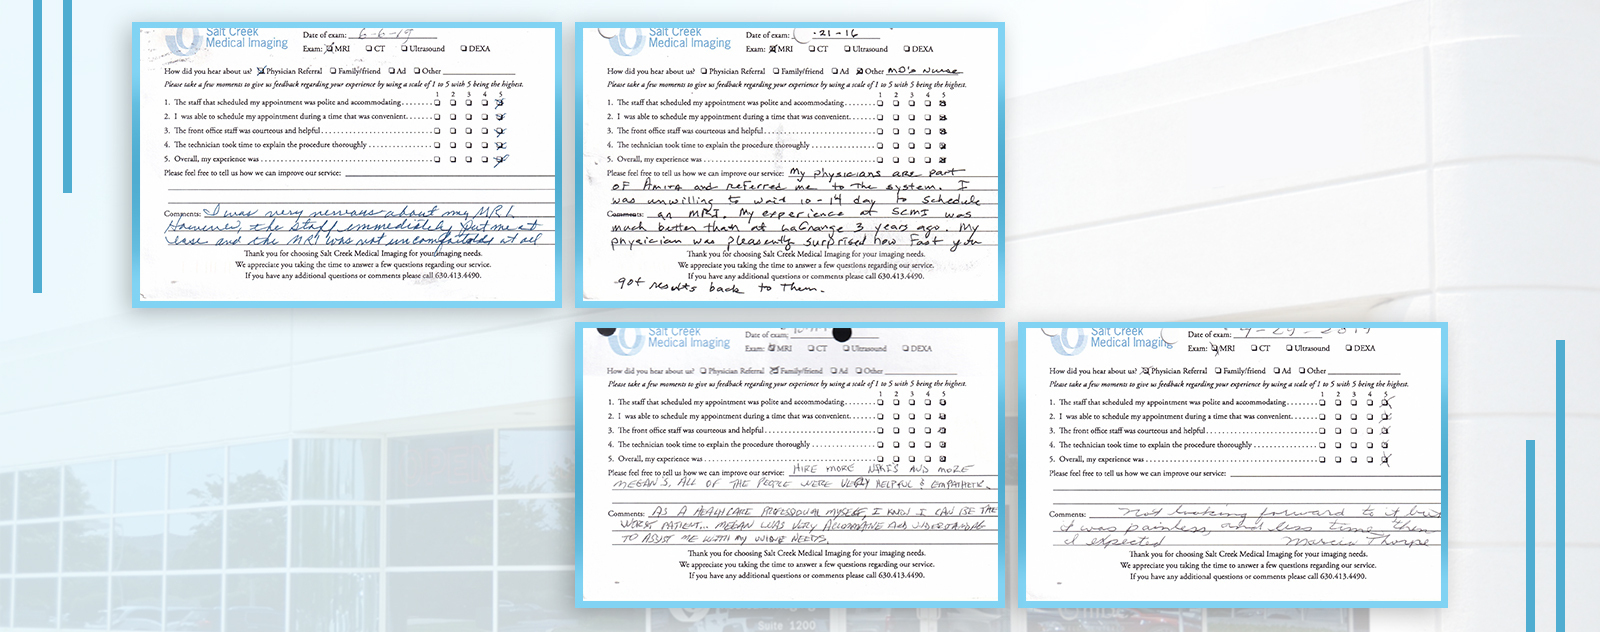 Salt Creek
Medical Imaging
Date of exam: 6-6-19
Exam: MRI CT Ultrasound DEXA
How did you hear about us? Physician Referral Family/friend Ad Other
Please take a few moments to give us feedback regarding your experience by using a scale of 1 to 5 with 5 being the highest.
1 2 3 4 5
1. The staff that scheduled my appointment was polite and accommodating
2. I was able to schedule my appointment during a time that was convenient
3. The front office staff was courteous and helpful
4. The technician took time to explain the procedure thoroughly
5. Overall, my experience was
Please feel free to tell us how we can improve our service:
Comments: I was very nervous about my MRI.
However, the staff immediately put me at
ease and the MRI was not uncomfortable at all
Thank you for choosing Salt Creek Medical Imaging for your imaging needs.
We appreciate you taking the time to answer a few questions regarding our service.
If you have any additional questions or comments please call 630.413.4490.
Salt Creek
Medical Imaging
Date of exam: -21-16
Exam: MRI CT Ultrasound DEXA
How did you hear about us? Physician Referral Family/friend Ad Other MD's Nurse
Please take a few moments to give us feedback regarding your experience by using a scale of 1 to 5 with 5 being the highest.
1 2 3 4 5
1. The staff that scheduled my appointment was polite and accommodating
2. I was able to schedule my appointment during a time that was convenient
3. The front office staff was courteous and helpful
4. The technician took time to explain the procedure thoroughly
5. Overall, my experience was
Please feel free to tell us how we can improve our service: My physicians are part
of Amita and referred me to the system. I
was unwilling to wait 10-14 day to schedule
Comments: an MRI. My experience at SCMI was
much better than at LaGrange 3 years ago. My
physician was pleasently surprised how fast you
Thank you for choosing Salt Creek Medical Imaging for your imaging needs.
We appreciate you taking the time to answer a few questions regarding our service.
If you have any additional questions or comments please call 630.413.4490.
got results back to them.
Salt Creek
Medical Imaging
Date of exam:
Exam: MRI CT Ultrasound DEXA
How did you hear about us? Physician Referral Family/friend Ad Other
Please take a few moments to give us feedback regarding your experience by using a scale of 1 to 5 with 5 being the highest.
1 2 3 4 5
1. The staff that scheduled my appointment was polite and accommodating
2. I was able to schedule my appointment during a time that was convenient
3. The front office staff was courteous and helpful
4. The technician took time to explain the procedure thoroughly
5. Overall, my experience was
Please feel free to tell us how we can improve our service: HIRE MORE NIKI'S AND MORE
MEGAN'S. ALL OF THE PEOPLE WERE VERY HELPFUL & EMPATHETIC.
Comments: AS A HEALTHCARE PROFESSIONAL MYSELF, I KNOW I CAN BE THE
WORST PATIENT... MEGAN WAS VERY AND UNDERSTANDING
TO ASSIST ME WITH MY NEEDS.
Thank you for choosing Salt Creek Medical Imaging for your imaging needs.
We appreciate you taking the time to answer a few questions regarding our service.
If you have any additional questions or comments please call 630.413.4490.
Salt Creek
Medical Imaging
Date of exam: 9-29-2019
Exam: MRI CT Ultrasound DEXA
How did you hear about us? Physician Referral Family/friend Ad Other
Please take a few moments to give us feedback regarding your experience by using a scale of 1 to 5 with 5 being the highest.
1 2 3 4 5
1. The staff that scheduled my appointment was polite and accommodating
2. I was able to schedule my appointment during a time that was convenient
3. The front office staff was courteous and helpful
4. The technician took time to explain the procedure thoroughly
5. Overall, my experience was
Please feel free to tell us how we can improve our service:
Comments: Not looking forward to it but
it was painless, and less time then
I expected Marcia Thorpe
Thank you for choosing Salt Creek Medical Imaging for your imaging needs.
We appreciate you taking the time to answer a few questions regarding our service.
If you have any additional questions or comments please call 630.413.4490.
Suite 1200